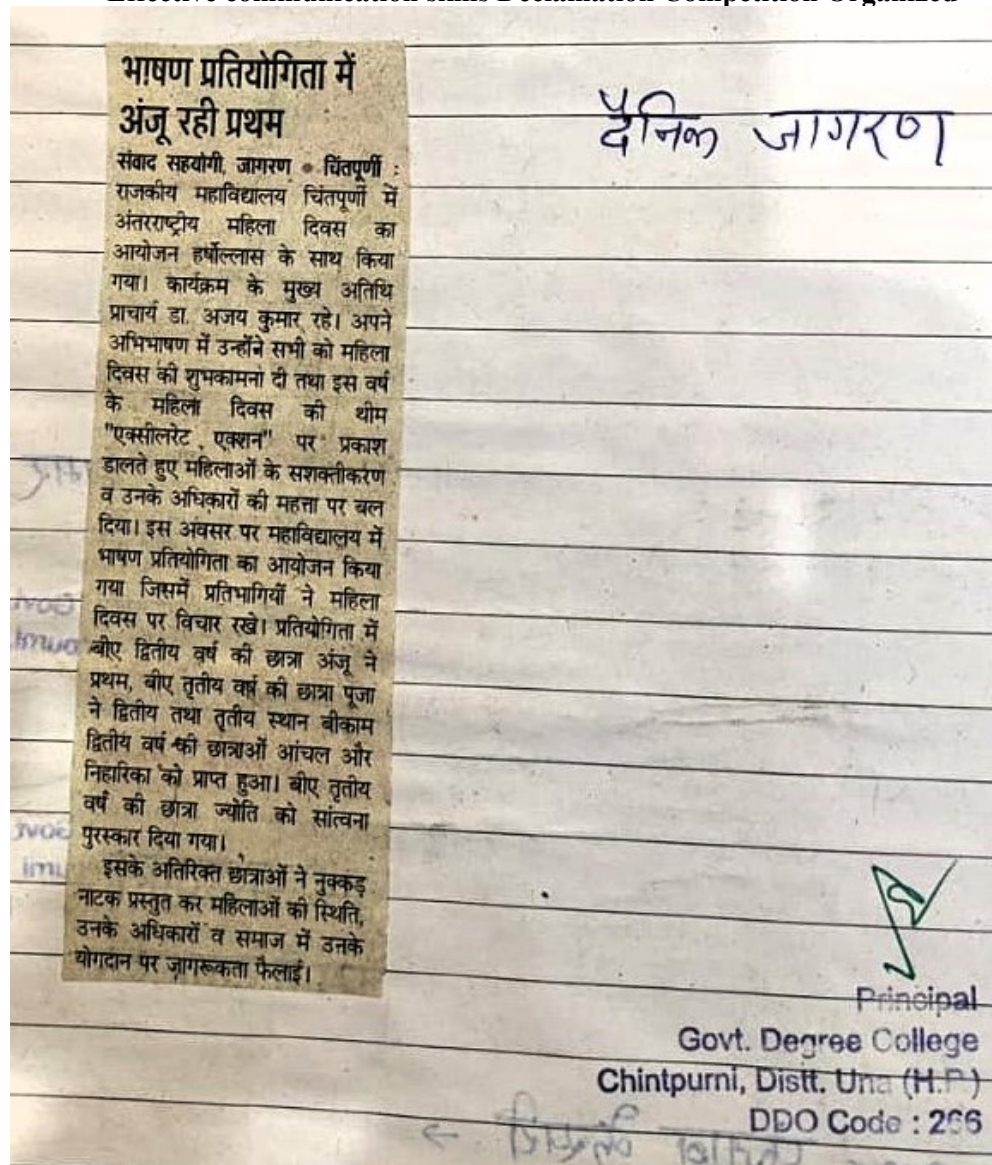 Effective communication skills Declamation Competition Organized
भाषण प्रतियोगिता में
अंजू रही प्रथम
दैनिक जागरण
संवाद सहयोगी, जागरण • चिंतपूर्णी :
राजकीय महाविद्यालय चिंतपूर्णी में
अंतरराष्ट्रीय महिला दिवस का
आयोजन हर्षोल्लास के साथ किया
गया। कार्यक्रम के मुख्य अतिथि
प्राचार्य डा. अजय कुमार रहे। अपने
अभिभाषण में उन्होंने सभी को महिला
दिवस की शुभकामना दी तथा इस वर्ष
के महिला दिवस की थीम
"एक्सीलरेट एक्शन" पर प्रकाश
डालते हुए महिलाओं के सशक्तीकरण
व उनके अधिकारों की महत्ता पर बल
दिया। इस अवसर पर महाविद्यालय में
भाषण प्रतियोगिता का आयोजन किया
गया जिसमें प्रतिभागियों ने महिला
दिवस पर विचार रखे। प्रतियोगिता में
बीए द्वितीय वर्ष की छात्रा अंजू ने
प्रथम, बीए तृतीय वर्ष की छात्रा पूजा
ने द्वितीय तथा तृतीय स्थान बीकाम
द्वितीय वर्ष की छात्राओं आंचल और
निहारिका को प्राप्त हुआ। बीए तृतीय
वर्ष की छात्रा ज्योति को सांत्वना
पुरस्कार दिया गया।
इसके अतिरिक्त छात्राओं ने नुक्कड़
नाटक प्रस्तुत कर महिलाओं की स्थिति,
उनके अधिकारों व समाज में उनके
योगदान पर जागरूकता फैलाई।
Principal
Govt. Degree College
Chintpurni, Distt. Una (H.P)
DDO Code : 266